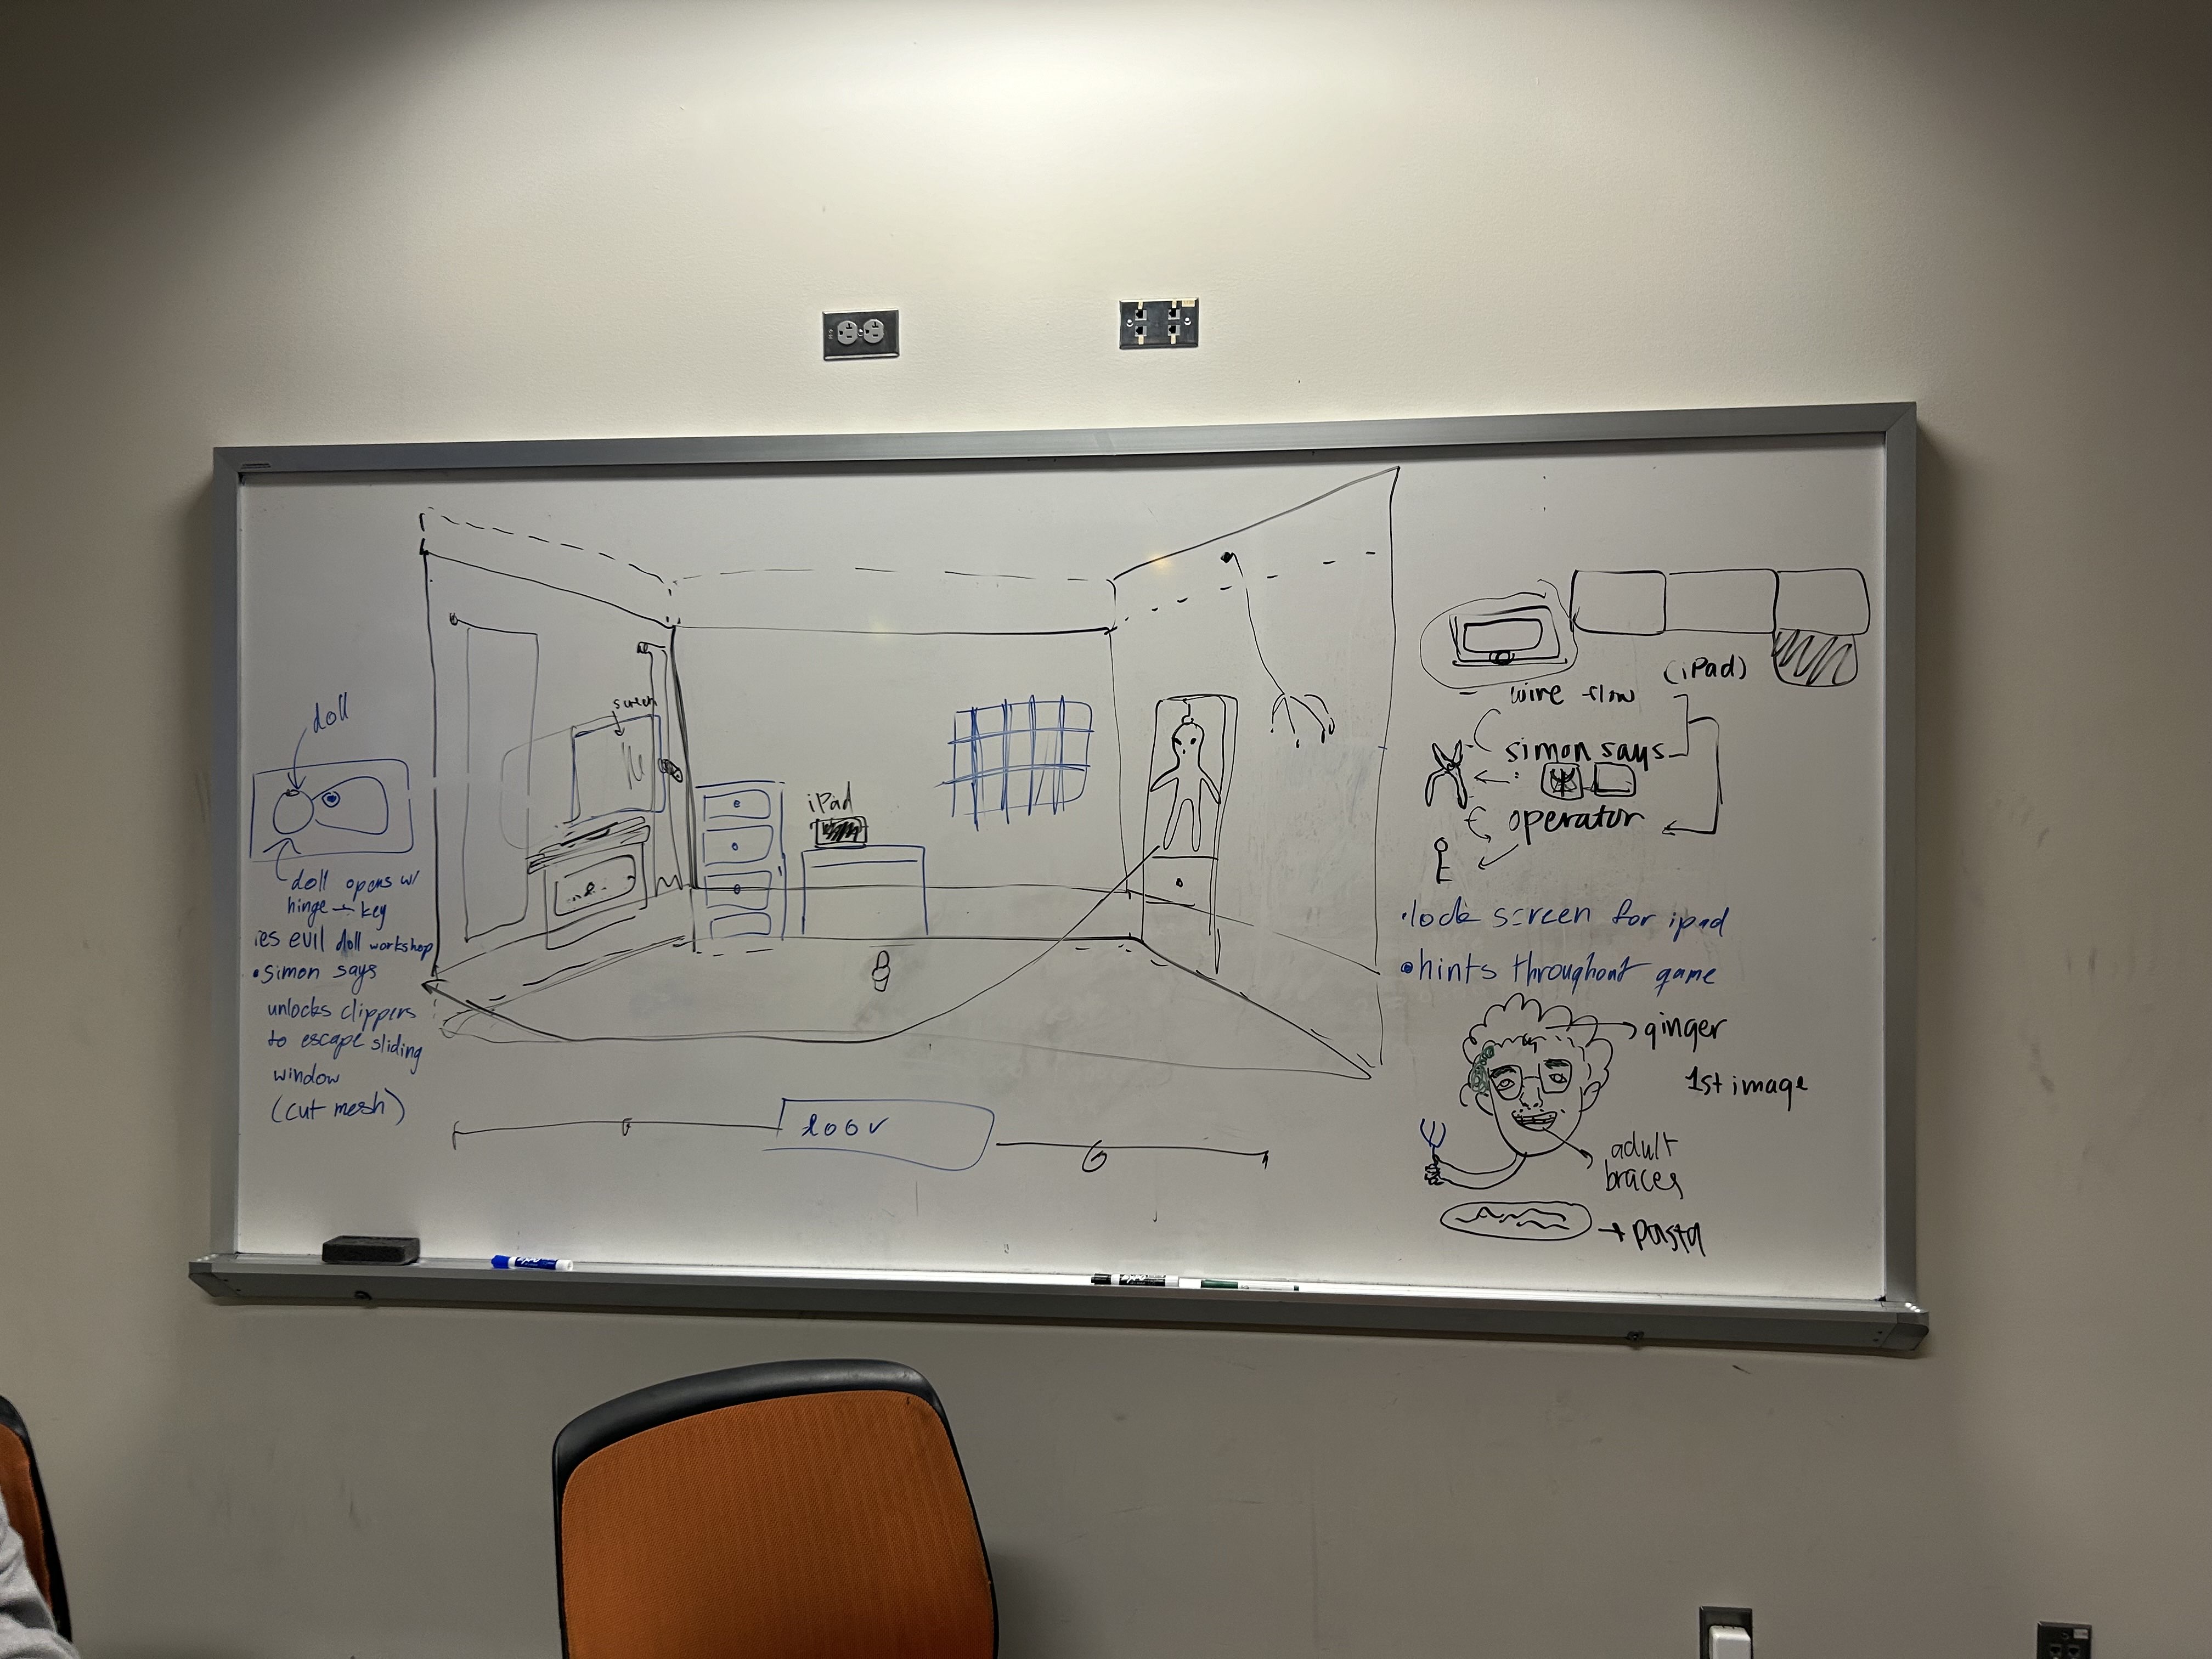 doll
doll opens w/
hinge
key
ies evil doll workshop
• simon says
unlocks clippers
to escape sliding
window
(cut mesh)
screen
iPad
(iPad)
wire flow
simon says
operator
• lock screen for ipad
• hints throughout game
ginger
1st image
adult
braces
pasta